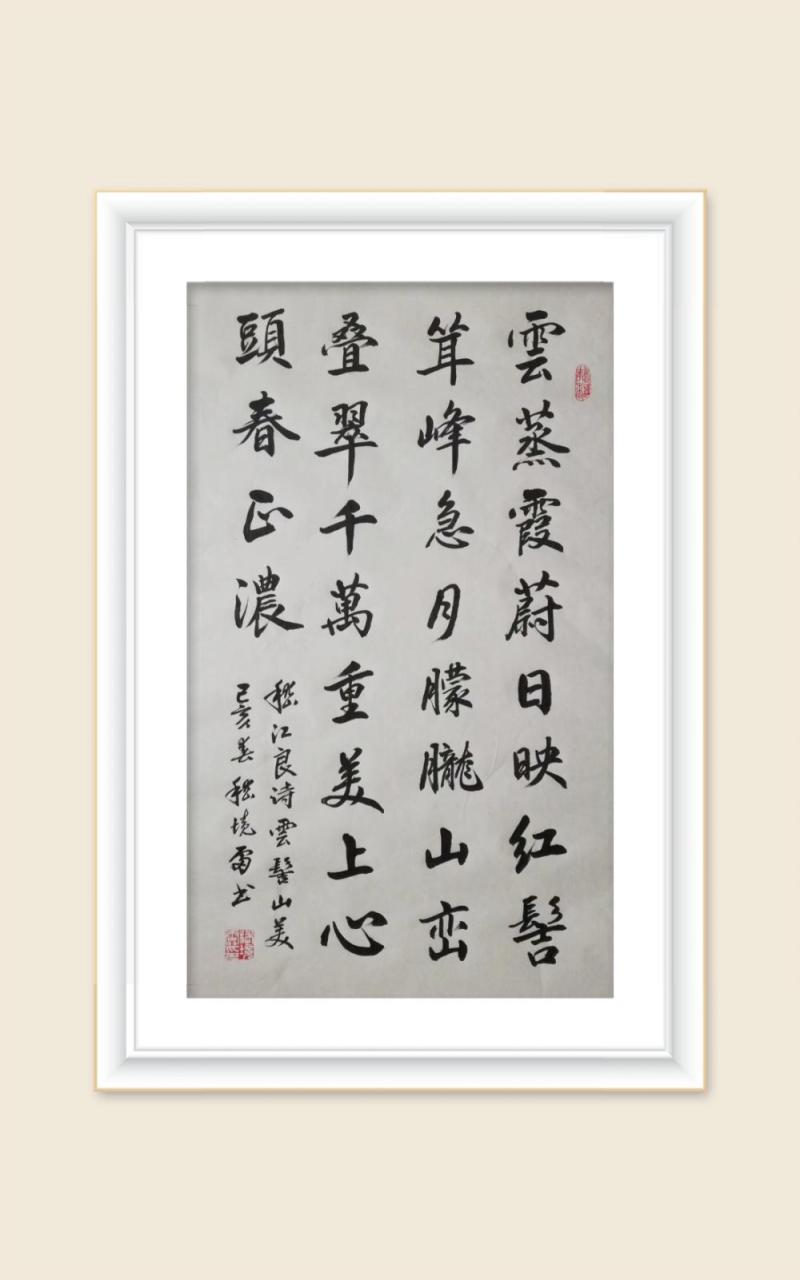 雲蒸霞蔚日映红髻
耸峰急月朦朧山峦
叠翠千萬重美上心
頭春正濃
嵇江良诗雲髻山美
己亥春嵇雷书